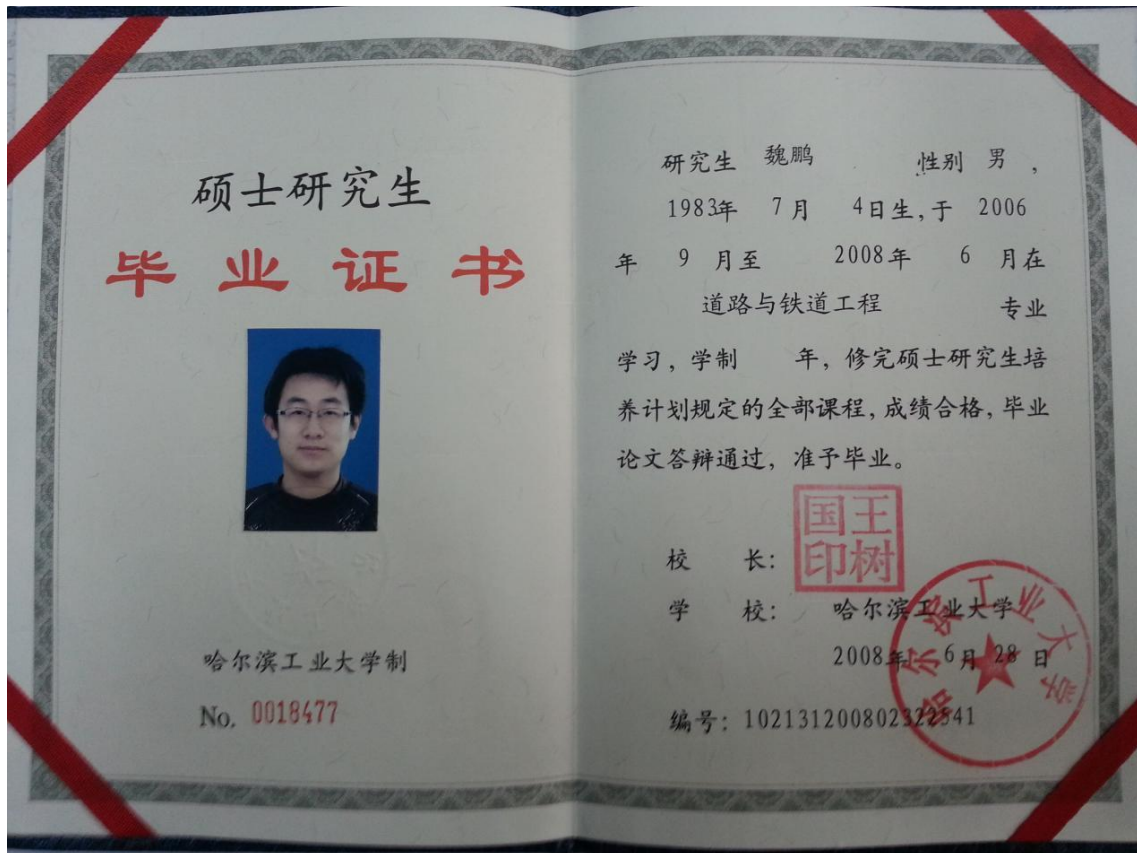 硕士研究生
毕业证书
哈尔滨工业大学制
No. 0018477
研究生 魏鹏 性别 男，
1983年 7月 4日生，于 2006
年 9 月至 2008年 6 月在
道路与铁道工程 专业
学习，学制 年，修完硕士研究生培
养计划规定的全部课程，成绩合格，毕业
论文答辩通过，准予毕业。
王树国印
校 长：
学 校： 哈尔滨工业大学
2008年 6月 28 日
编号：102131200802322541
哈尔滨工业大学